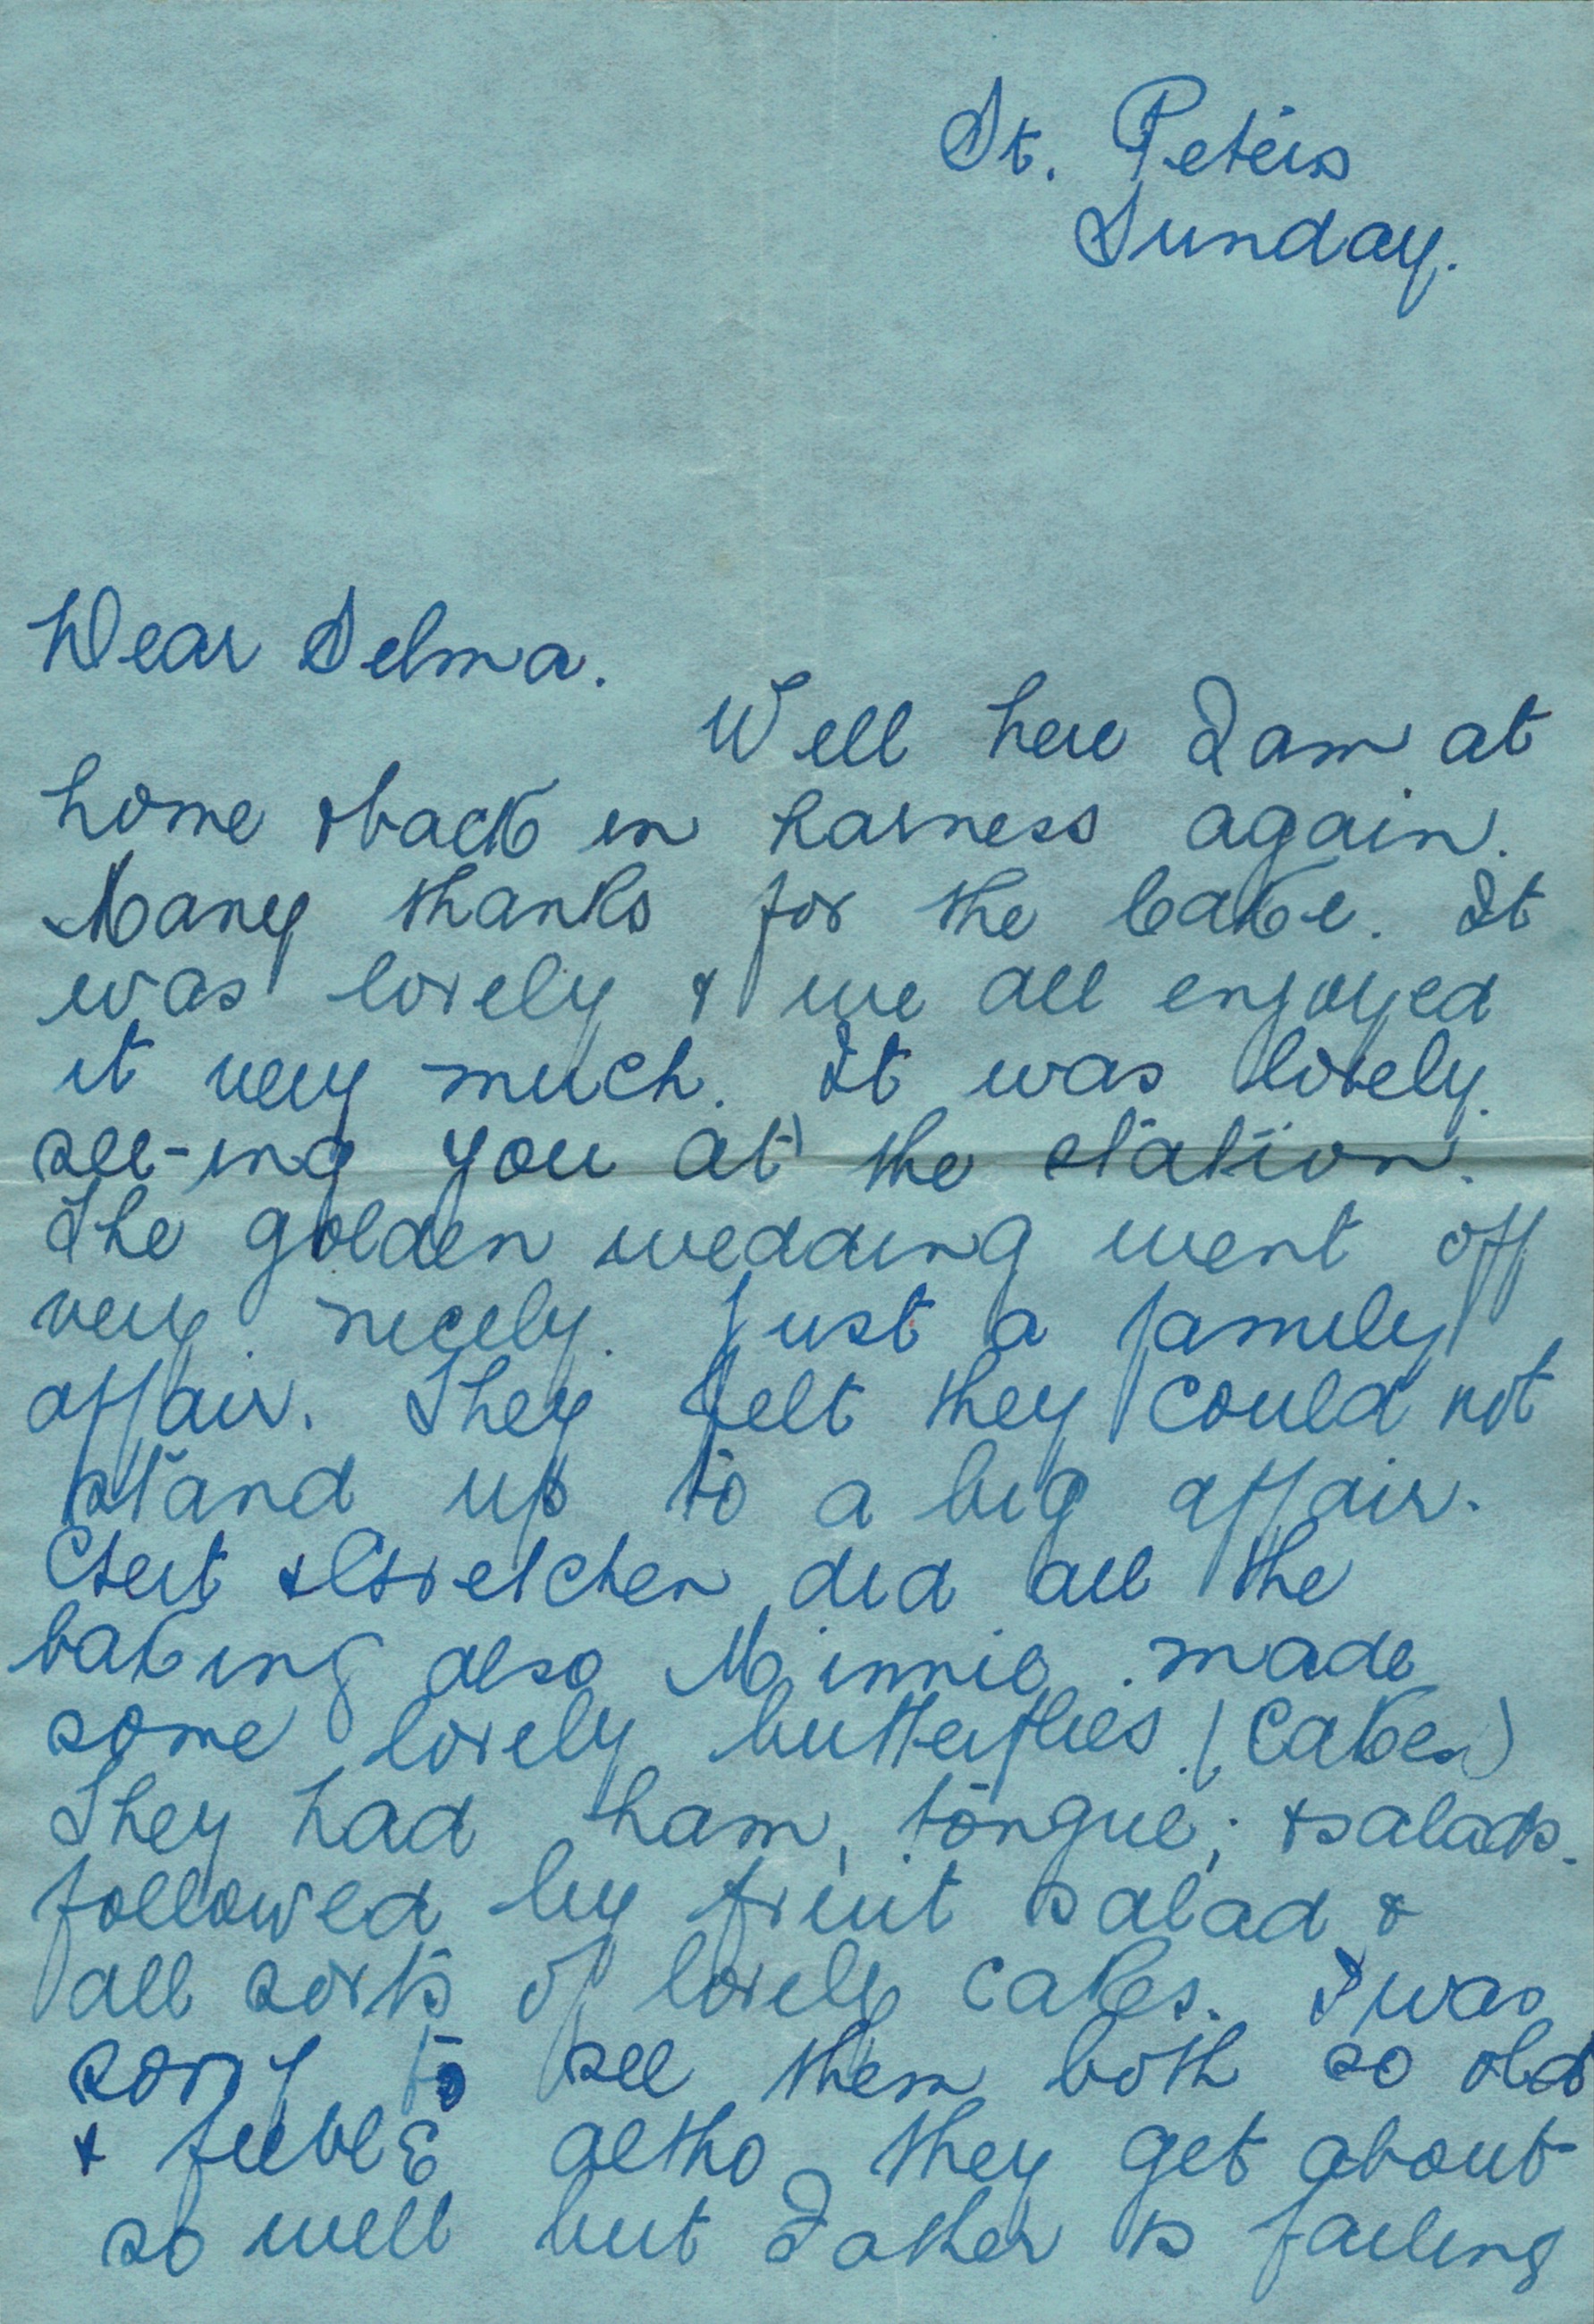 St. Peters
Sunday.
Dear Selma.
Well here I am at
home & back in harness again.
Many thanks for the cake. It
was lovely & we all enjoyed
it very much. It was lovely
see-ing you at the station.
The golden wedding went off
very nicely. Just a family
affair. They felt they could not
stand up to a big affair.
& Gretchen did all the
baking also Minnie made
some lovely butterflies (cakes)
They had ham, tongue, & salads.
followed by fruit salad &
all sorts of lovely cakes. I was
sorry to see them both so old
& feeble altho they get about
so well but Father is failing